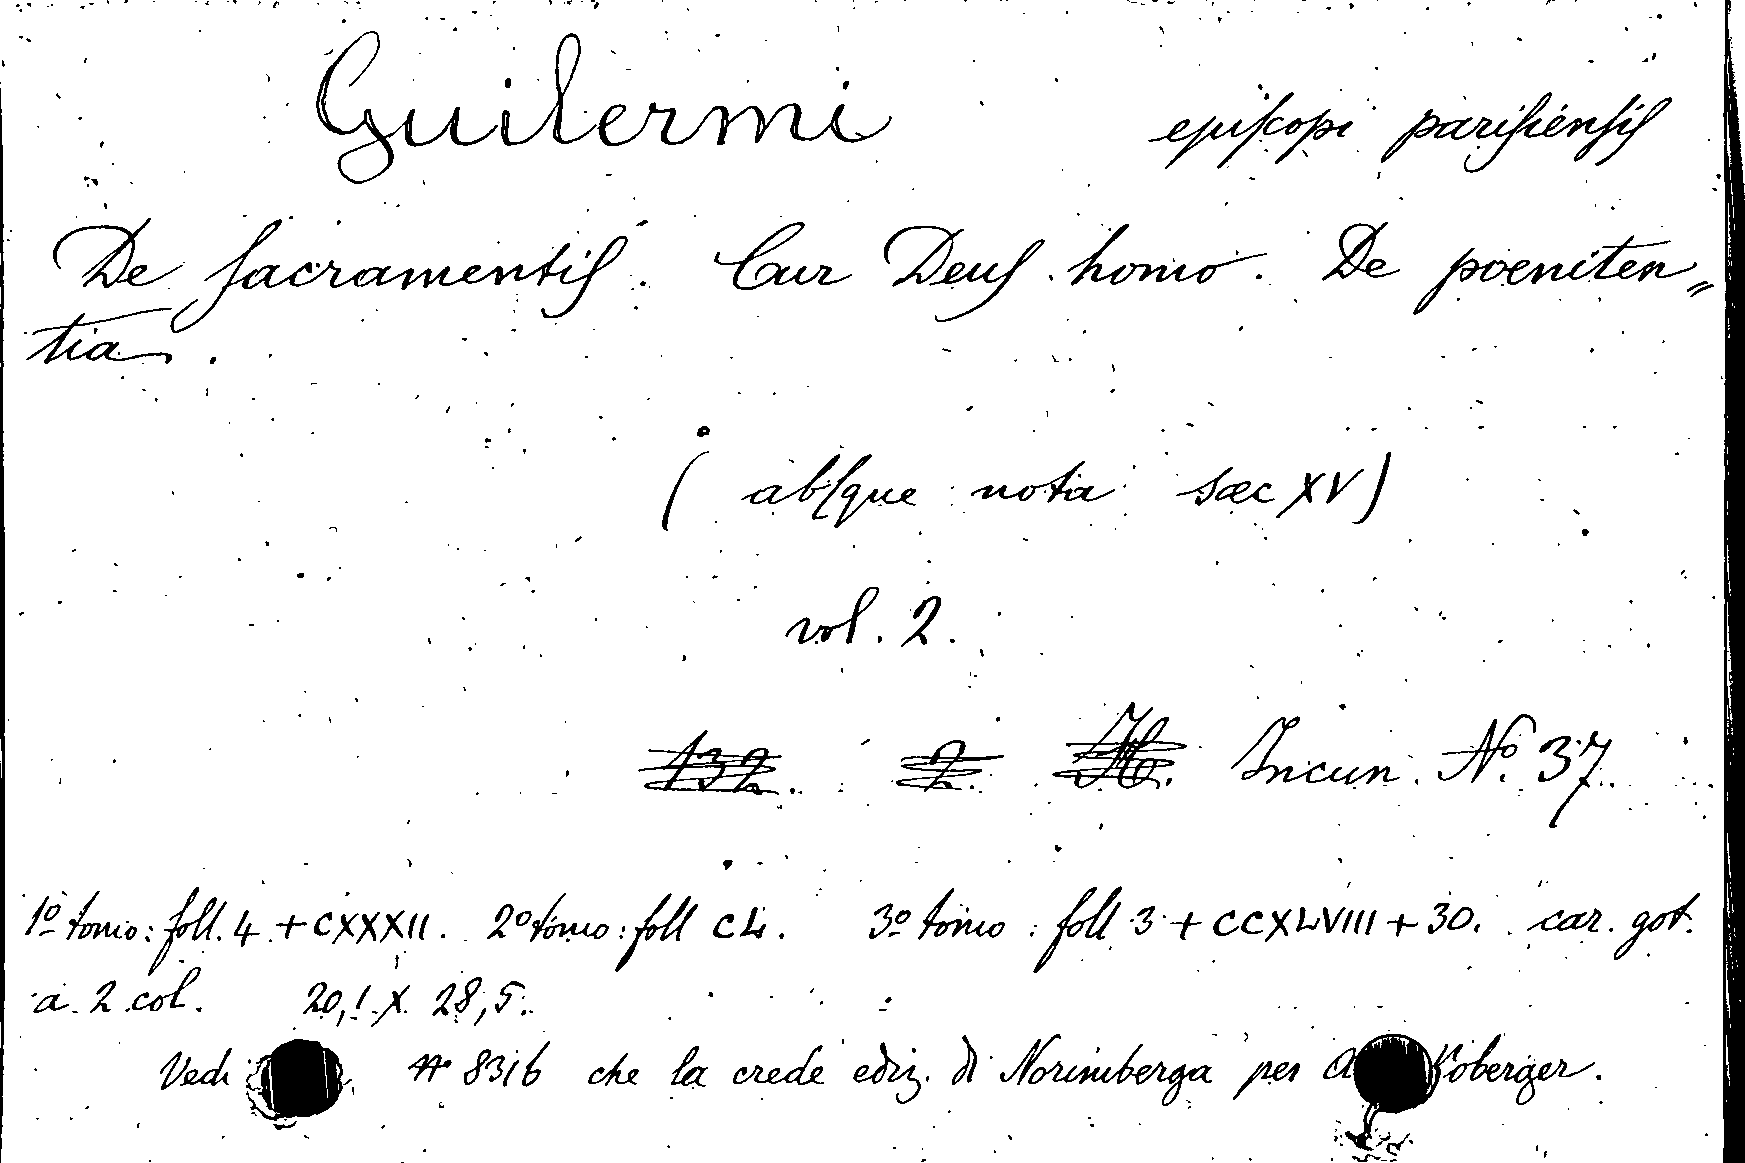 Guilermi episcopi parisiensis
De sacramentis. Cur Deus homo. De poeniten„
tia.
( absque nota sæc XV)
vol. 2.
132. 2. Incun. No. 37.
1º tomo: foll. 4 + CXXXII. 2º tomo: foll CL. 3º tomo: foll 3 + CCXLVIII + 30. car. got.
a 2 col. 20,1 X 28,5.
Vedi 8316 che la crede ediz. di Norimberga per Koberger.